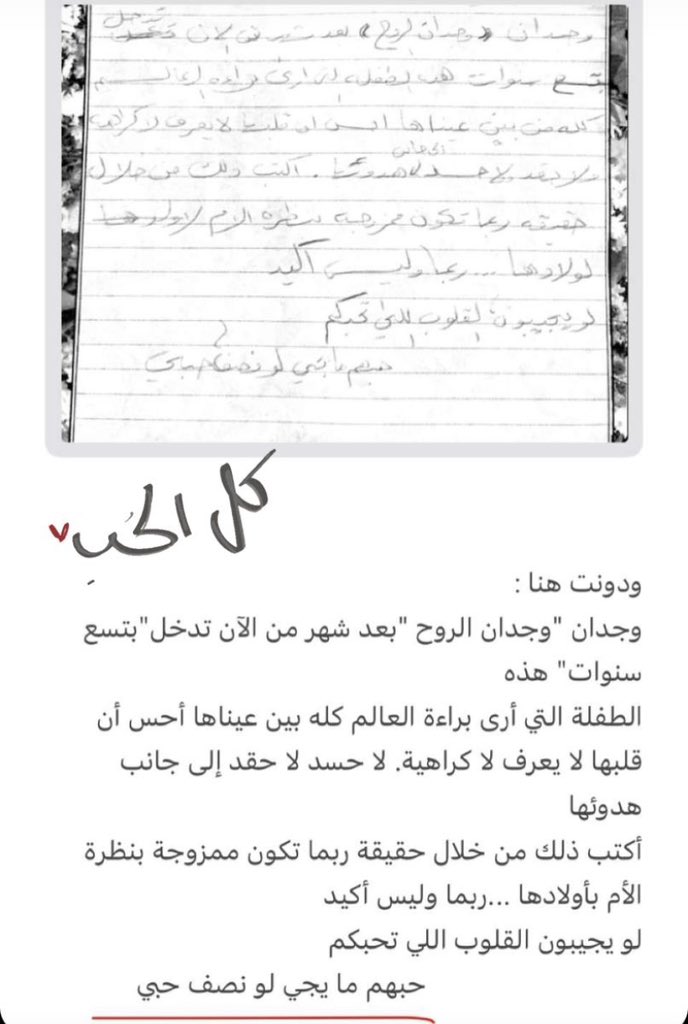 وجدان "وجدان الروح" بعد شهر من الآن تدخل
تسع سنوات هذه الطفله التي ارى براءة العالم
كله من بين عيناها احس ان قلبها لا يعرف لا كراهيه
ولا حقد ولا حسد الى جانب هدوئها. اكتب ذلك من خلال
حقيقه ربما تكون ممزوجه بنظرة الأم لأولادها
لولادها ... ربما وليس أكيد
لو يجيبون القلوب اللي تحبكم
حبهم ما يجي لو نصف حبي
كل الحُبِ
ودونت هنا :
وجدان "وجدان الروح "بعد شهر من الآن تدخل"بتسع
سنوات" هذه
الطفلة التي أرى براءة العالم كله بين عيناها أحس أن
قلبها لا يعرف لا كراهية. لا حسد لا حقد إلى جانب
هدوئها
أكتب ذلك من خلال حقيقة ربما تكون ممزوجة بنظرة
الأم بأولادها ...ربما وليس أكيد
لو يجيبون القلوب اللي تحبكم
حبهم ما يجي لو نصف حبي